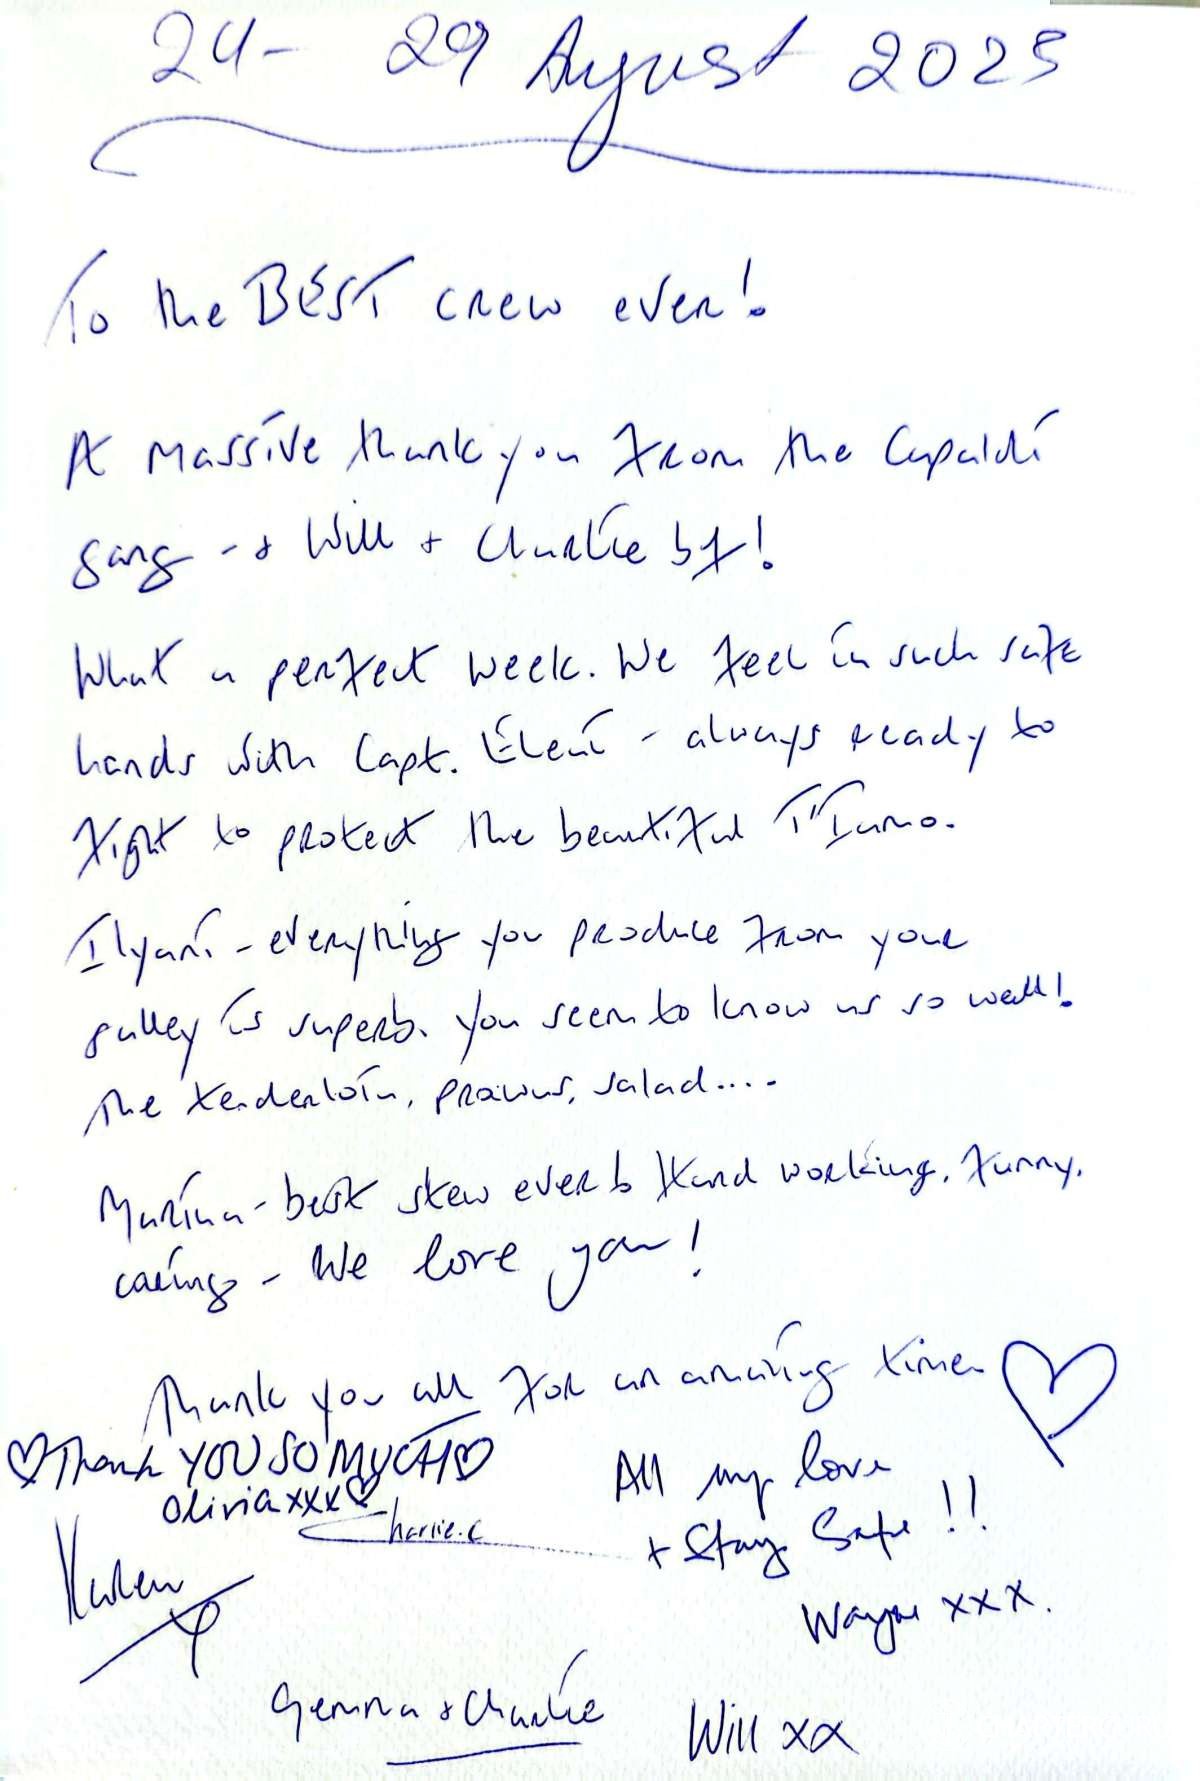 24 - 29 August 2025
To the BEST crew ever!
A massive thank you from the Capaldi
gang - + Will + Charlie bf!
What a perfect week. We feel in such safe
hands with Capt. Eleni - always ready to
fight to protect the beautiful
Ilyani - everything you produce from your
galley is superb. You seem to know us so well!
The tenderloin, prawns, salad....
Marina - best stew ever Hard working, funny,
caring - We love you!
Thank you all for an amazing time. ♡
♡ Thank YOU SO MUCH ♡
Olivia xxx ♡
Charlie.C
All my love
+ Stay Safe !!
Karen
Wayne xxx.
Gemma + Charlie
Will xx